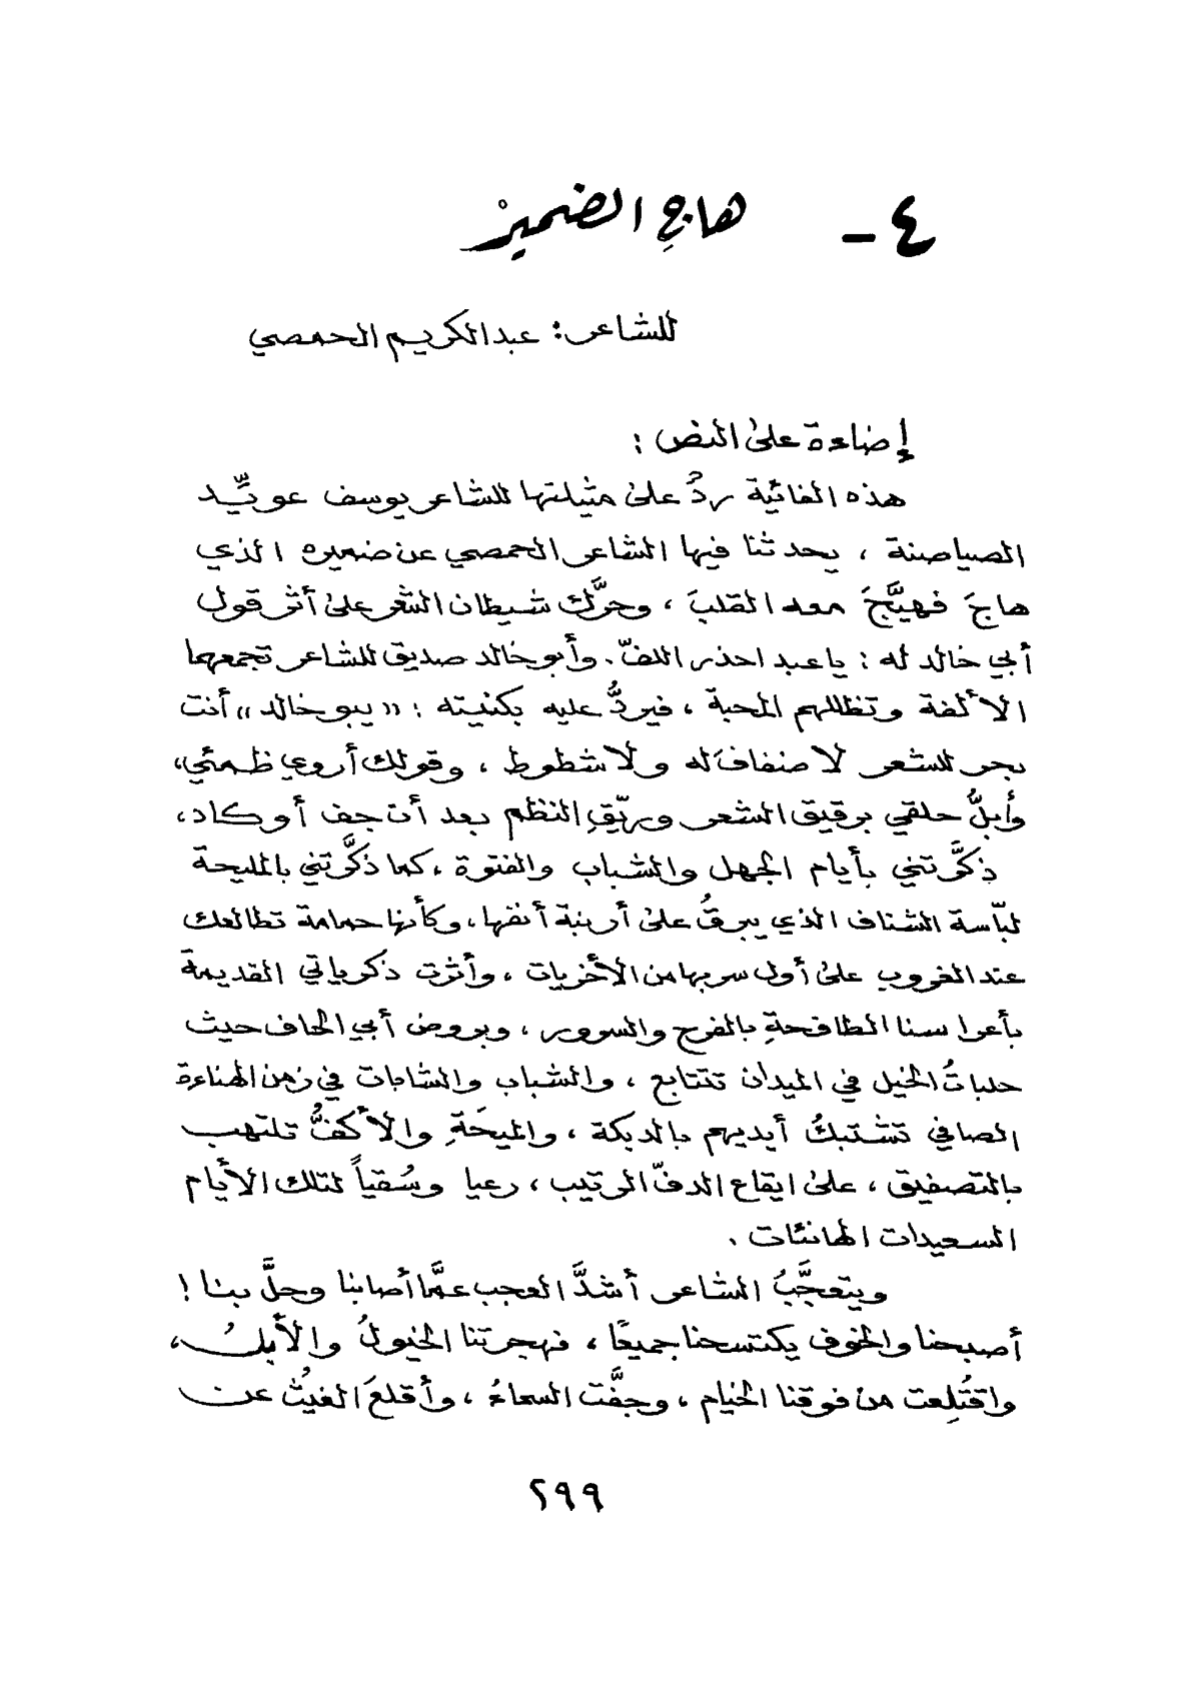 ٤ - هاجِ الضميرْ
للشاعر: عبدالكريم الحمصي
إضاءة على النص :
هذه الفائية ردُّ على مثيلتها للشاعر يوسف عويِّد
الصياصنة ، يحدثنا فيها الشاعر الحمصي عن ضميره الذي
هاجَ فهيَّجَ معه القلبَ ، وحرَّك شيطان الشعر على أثر قول
أبي خالد له : يا عبد احذر اللفّ . وأبو خالد صديق للشاعر تجمعهما
الألفة وتظللهم المحبة ، فيردُّ عليه بكنيته : «يبو خالد» أنت
بحر للشعر لا ضفافَ له ولا شطوط ، وقولك أروي ظمئي،
وأبلُّ حلقي برقيق الشعر وريّقِ النظم بعد أن جف أو كاد،
ذكَّرتني بأيام الجهل والشباب والفتوة ، كما ذكَّرتني بالمليحة
لبّاسة الشناف الذي يبرقُ على أرنبة أنفها، وكأنها حمامة تطالعك
عند الغروب على أول سربها من الأخريات ، وأثرت ذكرياتي القديمة
بأعراسنا الطافحةِ بالفرح والسرور ، وبروض أبي الحاف حيث
حلباتُ الخيل في الميدان تتتابع ، والشباب والشابات في زمن الهناءة
الصافي تشتبكُ أيديهم بالدبكة ، والميحَةِ والأكفُّ تلتهب
بالتصفيق ، على ايقاع الدفّ الرتيب ، رعيا وسُقياً لتلك الأيام
السعيدات الهانئات .
ويتعجَّبُ الشاعر أشدَّ العجب عمَّا أصابنا وحلَّ بنا !
أصبحنا والخوف يكتسحنا جميعًا ، فهجرتنا الخيولُ والأبلُ ،
واقتُلِعت من فوقنا الخيام ، وجفَّت السماءُ ، وأقلعَ الغيثُ عن
٢٩٩